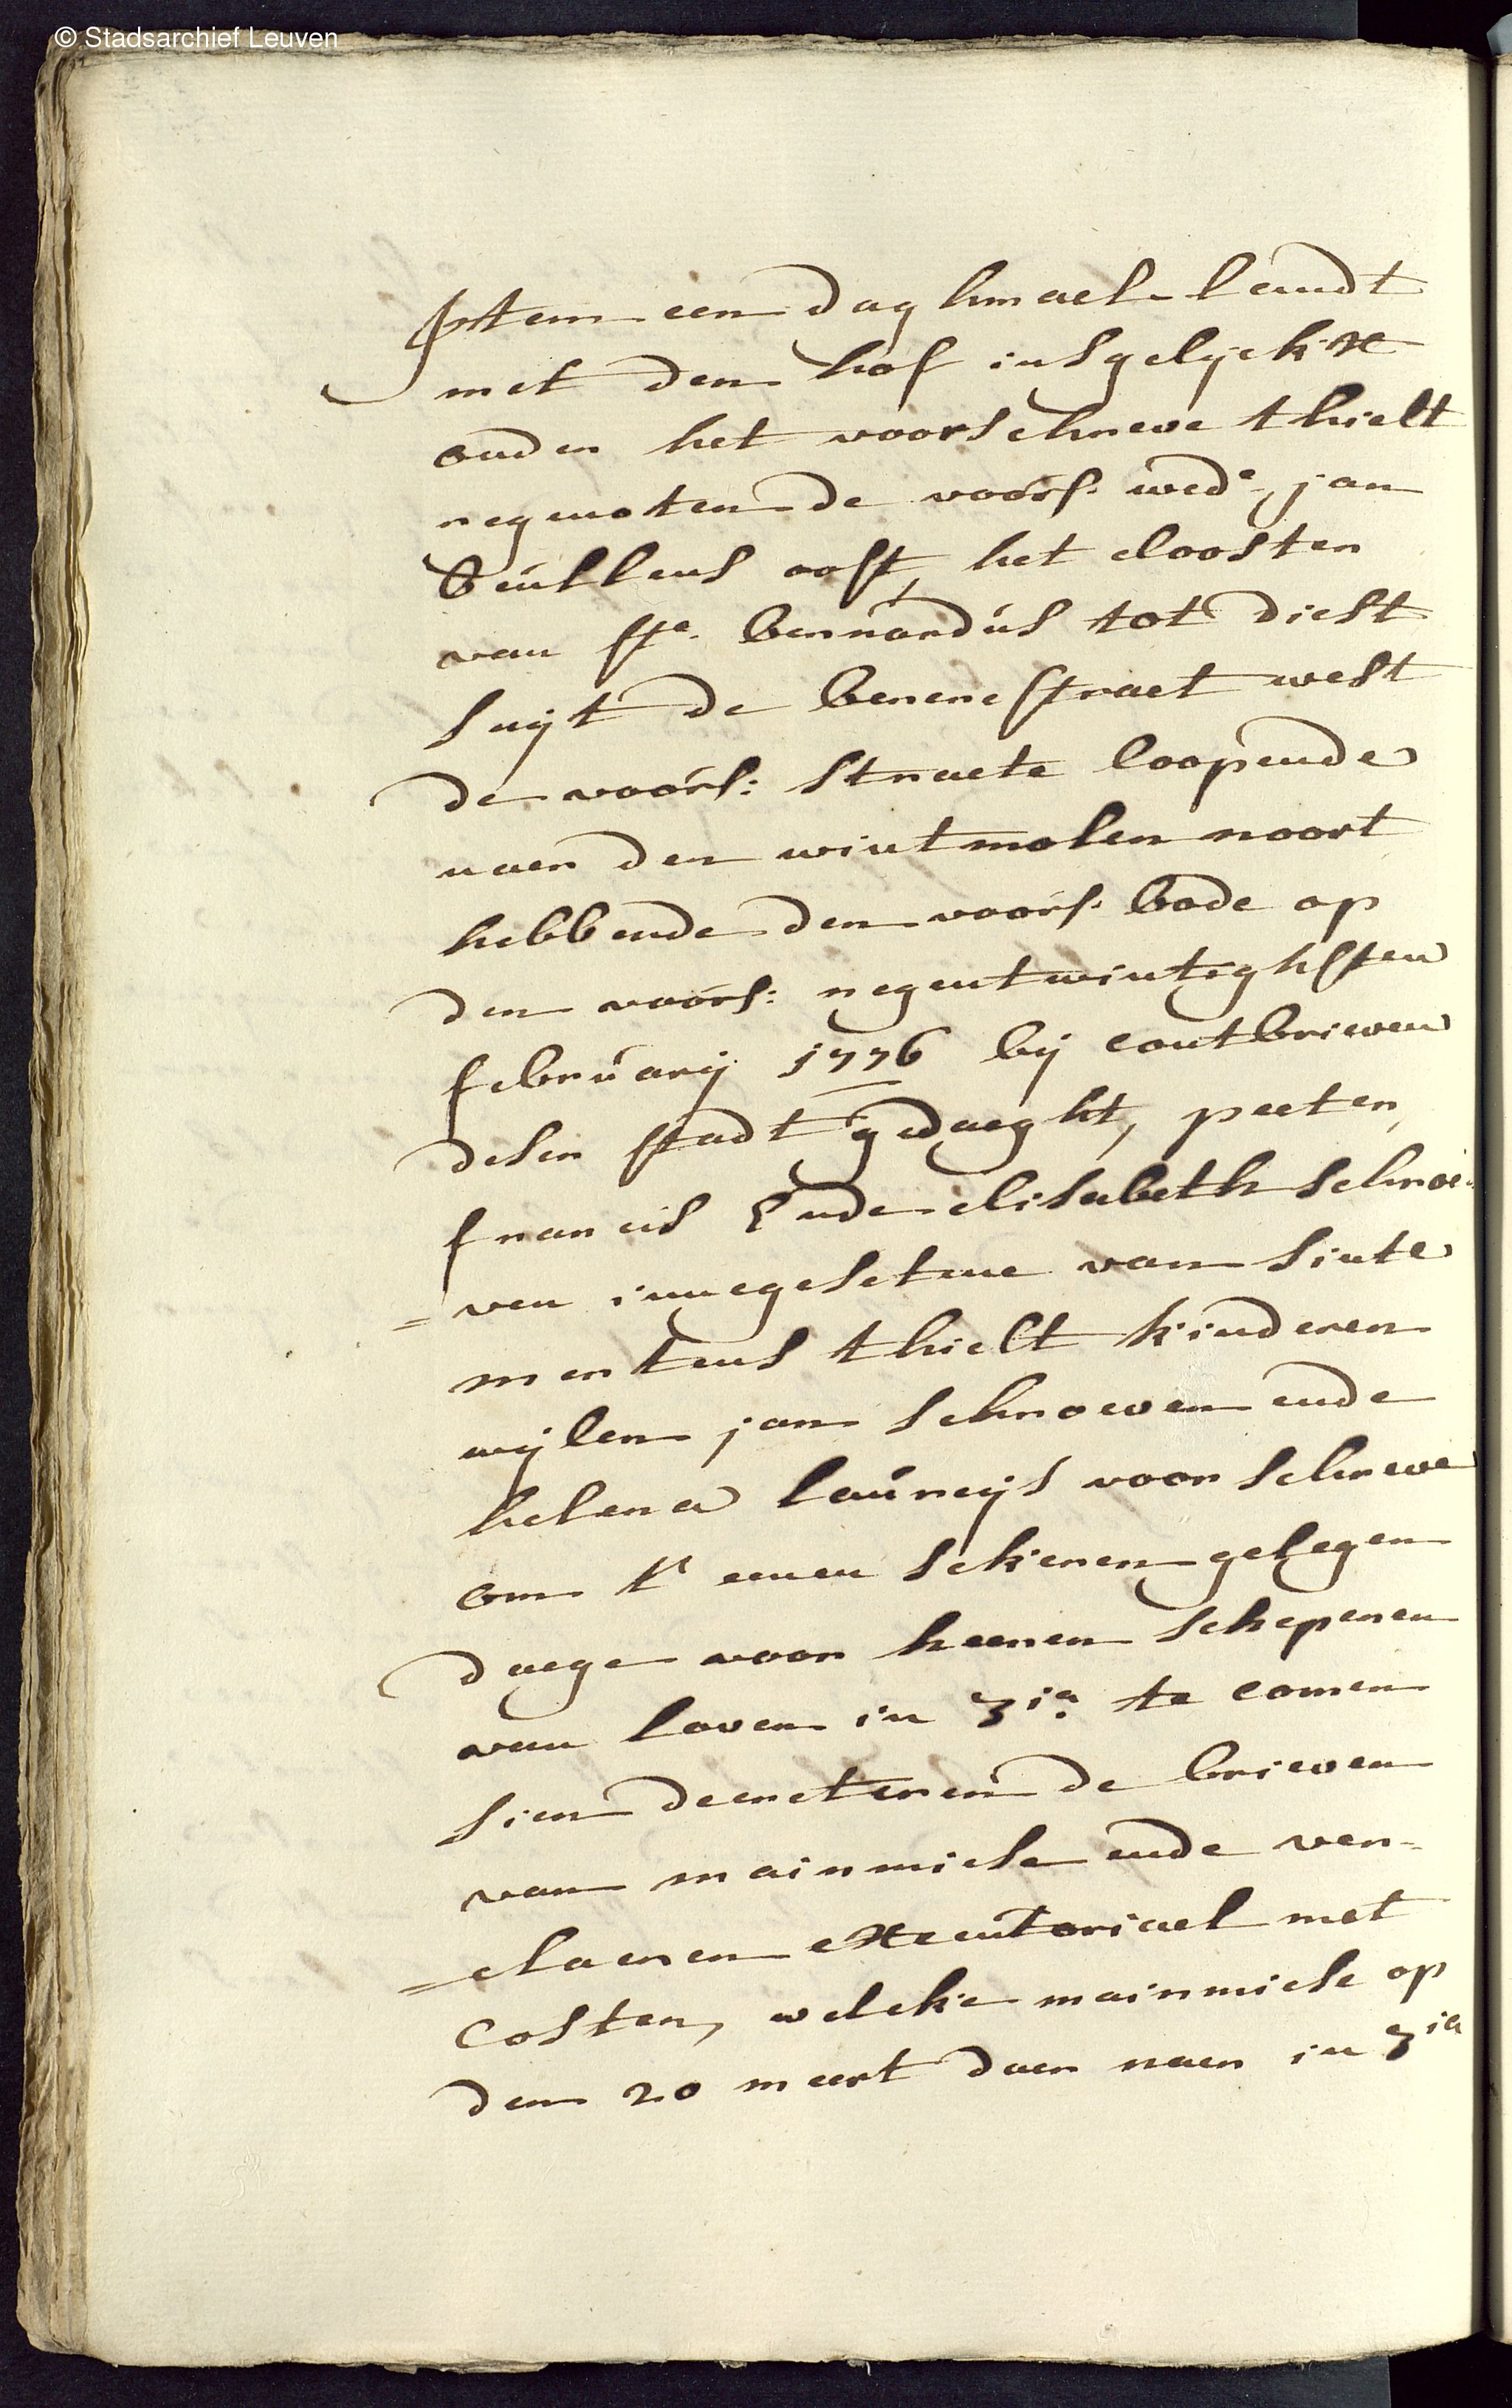 © Stadsarchief Leuven
Item een daghmael landt
met den hof insgelyckx
onder het voorschreve thielt
regenoten de voors: wed.e jan
Beullens oost, het clooster
van ste. bernardus tot diest
suyt de berenestraet west
de voors: straete loopende
naer den wintmolen noort
hebbende den voors: bode op
den voors: negentwintighsten
february 1776 by coutbrieven
deser stadt gedaeght, peeter,
francis Ende elisabeth schroe-
=ven innegesetene van sinte
mertens thielt kinderen
wylen jan schroeven ende
helena laureys voorschreve
om t' eenen sekeren gelegen
daege voor heeren schepenen
van loven in 3ia. te comen
sien decreteren de brieven
van mainmiese ende ver-
=claeren executoriael met
costen, welcke mainmiese op
den 20 meert daer naer in 3ia